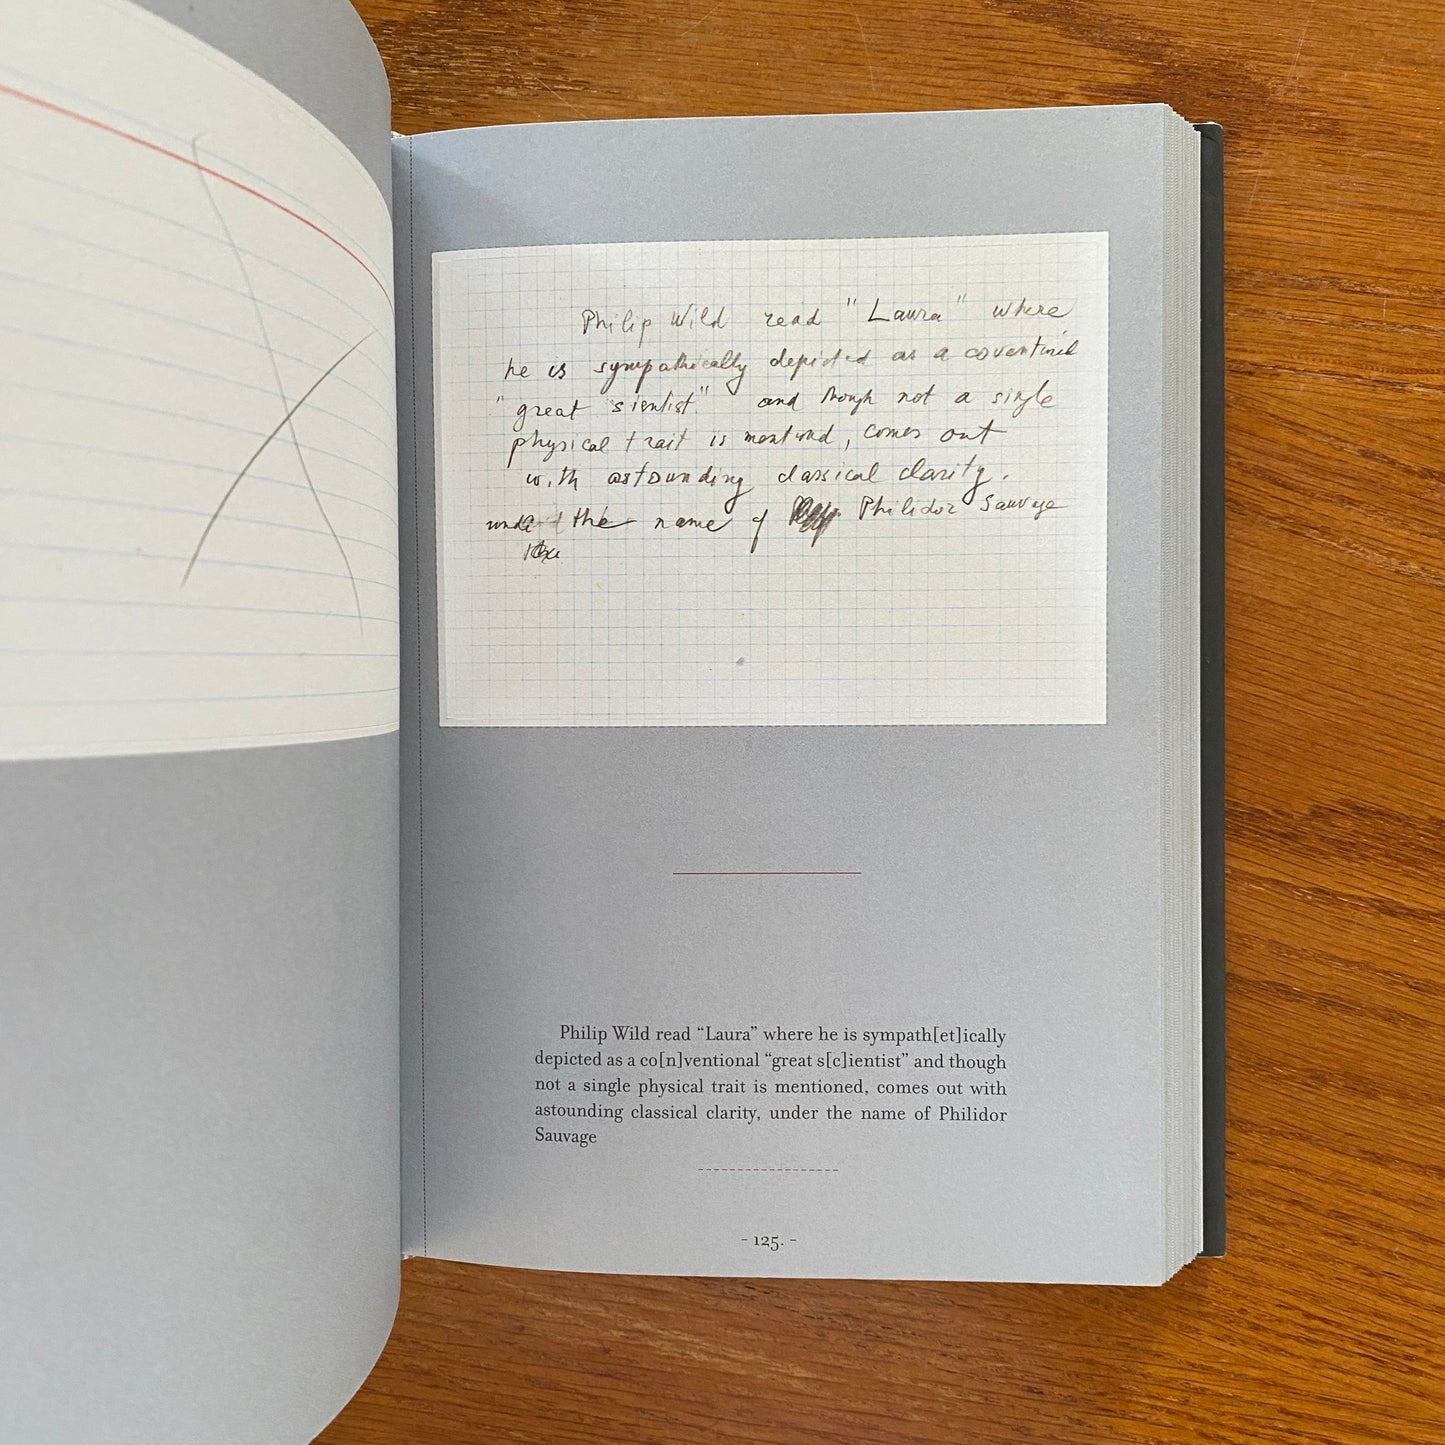 Philip Wild read "Laura" where
he is sympathically depicted as a coventional
"great sientist" and though not a single
physical trait is mentiond, comes out
with astounding classical clarity.
under the name of Philidor Sauvage
Philip Wild read “Laura” where he is sympath[et]ically
depicted as a co[n]ventional “great s[c]ientist” and though
not a single physical trait is mentioned, comes out with
astounding classical clarity, under the name of Philidor
Sauvage
- 125. -